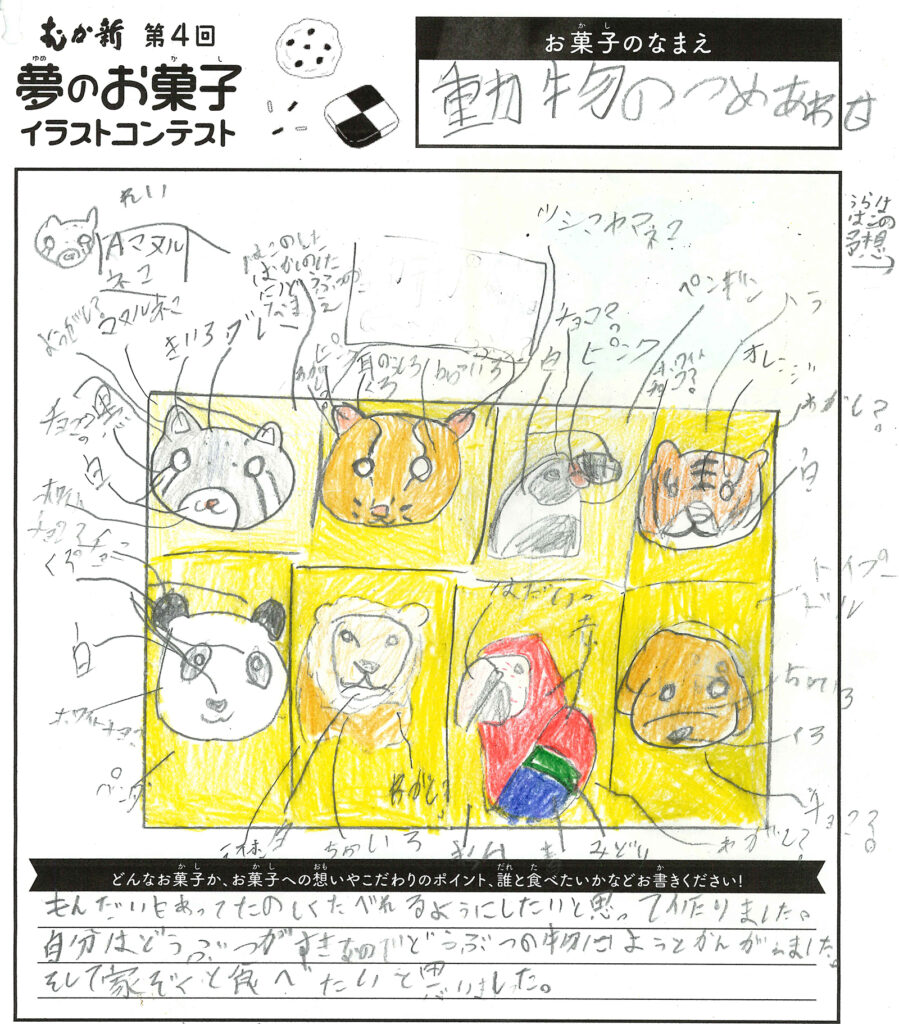 むか新 第4回
夢のお菓子
ゆめ か し
イラストコンテスト
お菓子のなまえ
か し
動物のつめあわせ
うらは
はこの
予想
れい
Aマヌル
ネコ
マヌルネコ
ツシマヤマネコ
ペンギン
トラ
オレンジ
きいろ
グレー
ピンク
耳のうしろ
くろ
白
チョコ?
ピンク
ホワイト
チョコ?
わがし?
白
ホワイト
チョコ?
白
ホワイトチョコ?
パンダ
はだいろ
赤
トイプー
ドル
ちゃいろ
くろ
チョコ?
わがし?
みどり
青
ちゃいろ
わがし?
どんなお菓子か、お菓子への想いやこだわりのポイント、誰と食べたいかなどお書きください!
か し か し おも だれ た か
もんだいもあってたのしくたべれるようにしたいと思って作りました。
自分はどうぶつがすきなのでどうぶつの物にしようとかんがえました。
そして家ぞくと食べたいと思いました。